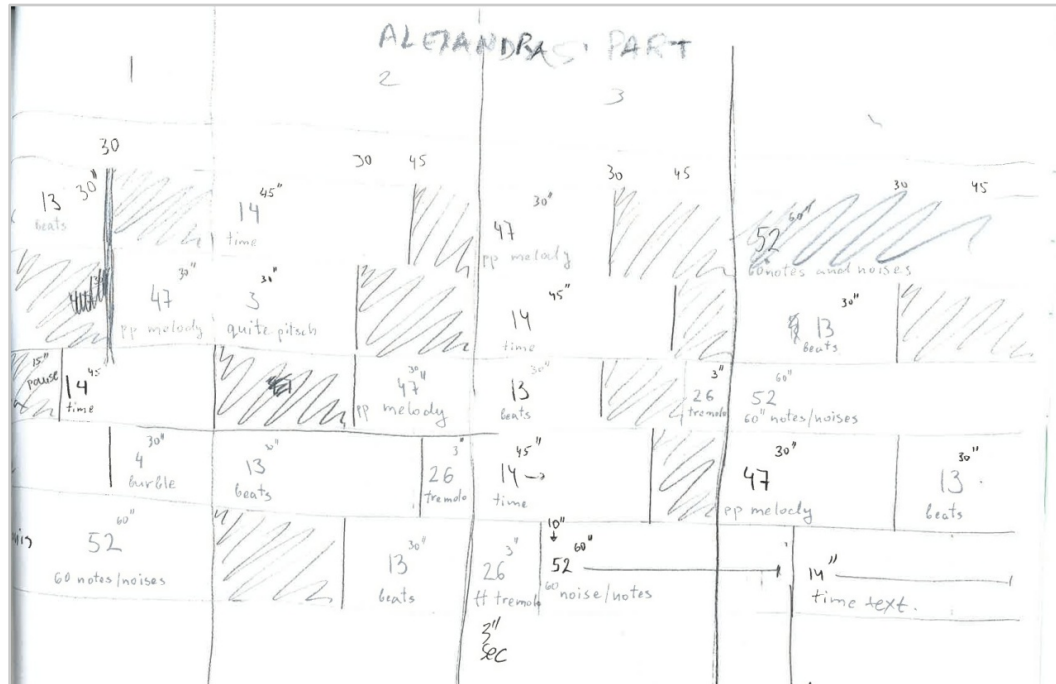 ALEXANDRAS' PART
1 2 3
30 30 45 30 45 30 45
13 30"
beats
14 45"
time
47 30"
pp melody
52 60"
60 notes and noises
47 30"
pp melody
3 30"
quite pitsch
14 45"
time
13 30"
beats
15"
pause
14 45"
time
47 30"
pp melody
13 30"
beats
26 3"
tremolo
52 60"
60" notes/noises
4 30"
burble
13 30"
beats
26 3"
tremolo
14 → 45"
time
47 30"
pp melody
13 30"
beats
52 60"
60 notes/noises
13 30"
beats
26 3"
ff tremolo
10"
52 60"
60 noise/notes
14"
time text.
3"
sec